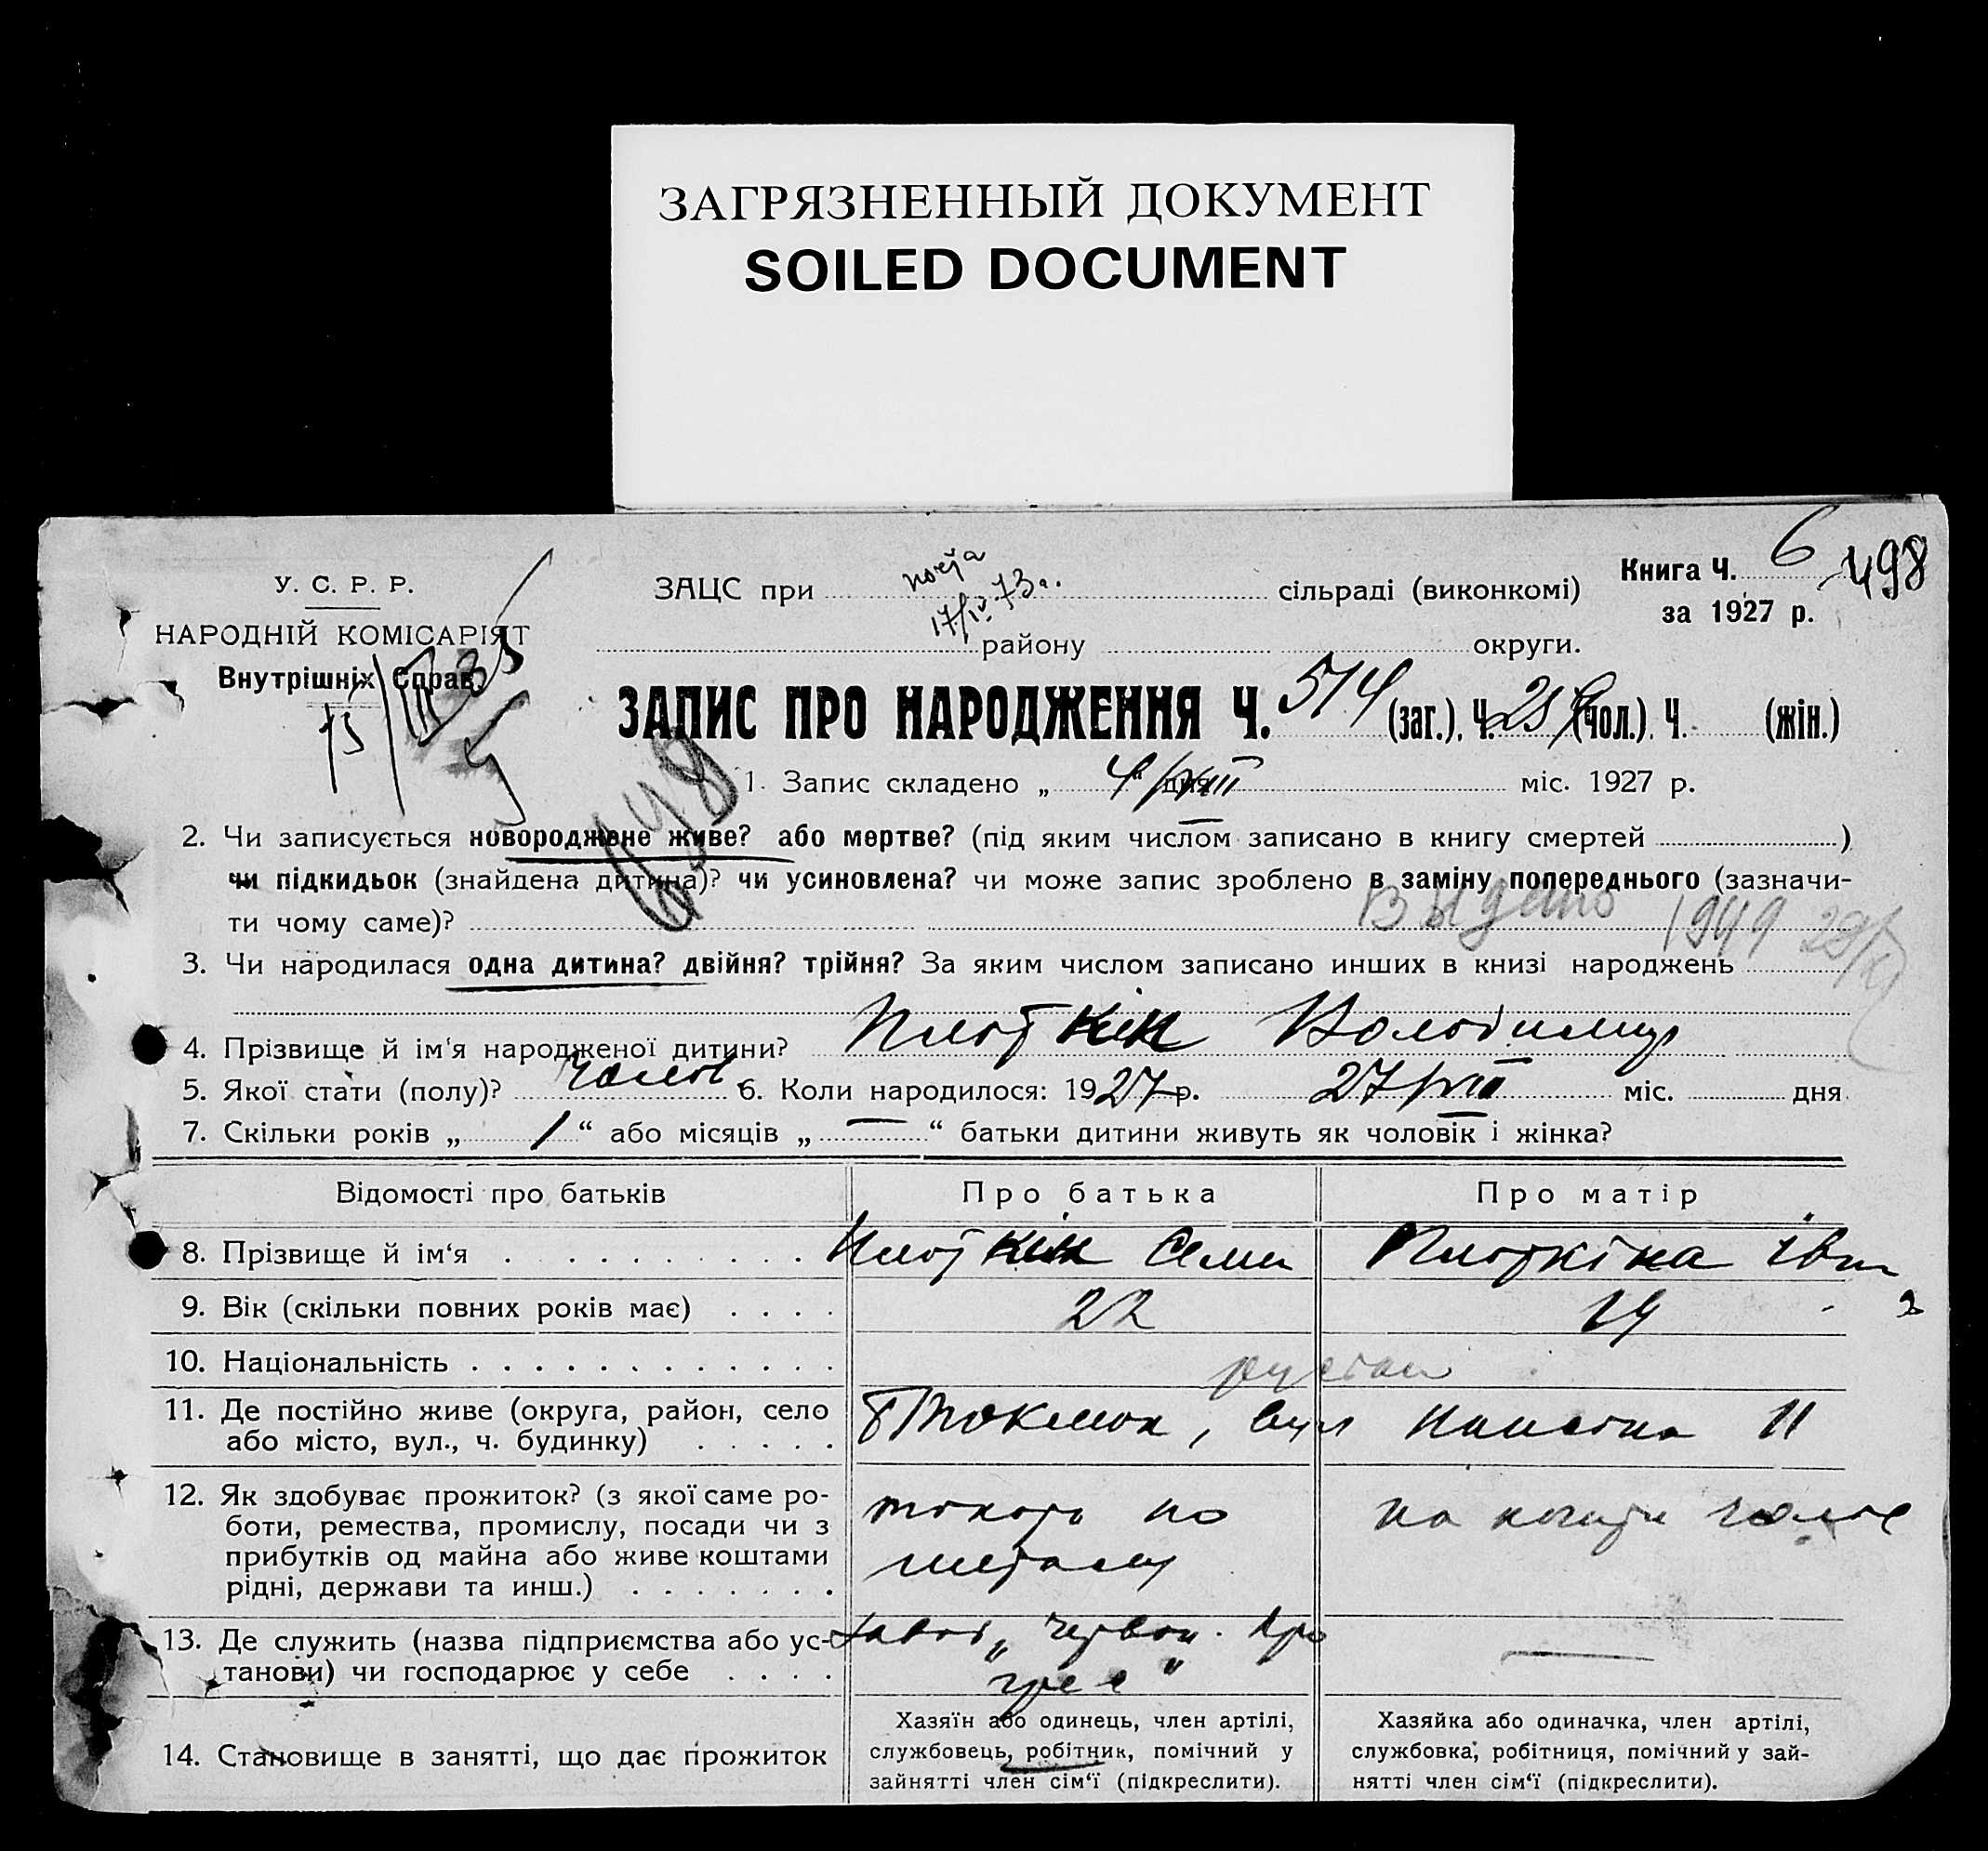 ЗАГРЯЗНЕННЫЙ ДОКУМЕНТ
SOILED DOCUMENT
Книга Ч. 6 498
за 1927 р.
У. С. Р. Р.
НАРОДНІЙ КОМІСАРІЯТ
Внутрішніх Справ.
ЗАЦС при сільраді (виконкомі)
17/IV 73 г.
району округи.
ЗАПИС ПРО НАРОДЖЕННЯ Ч. 514 (заг.). Ч. (чол.). Ч. (жін.)
498
1. Запис складено „ 4/VIII “ дня міс. 1927 р.
2. Чи записується новороджене живе? або мертве? (під яким числом записано в книгу смертей )
чи підкидьок (знайдена дитина)? чи усиновлена? чи може запис зроблено в заміну попереднього (зазначи-
ти чому саме)?
Выдано 1949
3. Чи народилася одна дитина? двійня? трійня? За яким числом записано инших в книзі народжень
4. Прізвище й ім'я народженої дитини? Плоткін Володимир
5. Якої стати (полу)? чолов. 6. Коли народилося: 1927 р. 27/VII міс. дня
7. Скільки років „ 1 “ або місяців „ — “ батьки дитини живуть як чоловік і жінка?
Відомості про батьків Про батька Про матір
8. Прізвище й ім'я Плоткін Семен Плоткіна
9. Вік (скільки повних років має) 22 19
10. Національність
11. Де постійно живе (округа, район, село
або місто, вул., ч. будинку)
Токмак, вул 11
12. Як здобуває прожиток? (з якої саме ро-
боти, ремества, промислу, посади чи з
прибутків од майна або живе коштами
рідні, держави та инш.)
токарь по
металу
13. Де служить (назва підприємства або ус-
танови) чи господарює у себе
завод „Червон. Про
грес“
14. Становище в занятті, що дає прожиток
Хазяїн або одинець, член артілі,
службовець, робітник, помічний у
зайнятті член сім'ї (підкреслити).
Хазяйка або одиначка, член артілі,
службовка, робітниця, помічний у зай-
нятті член сім'ї (підкреслити).